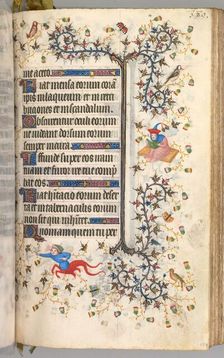 me aceto
Fiat mensa eorum corā
ipsis in laqueum et in retri
butiones et in scandalum
Obscurentur oculi eorum
et dorsum eorum
semper incurua
Effunde super eos iram
tuam et furor ire tue comp
hendat eos
Fiat habitatio eorum deser
ta et in tabernaculis eorum
non sit qui inhabitet
Quoniam quem tu per